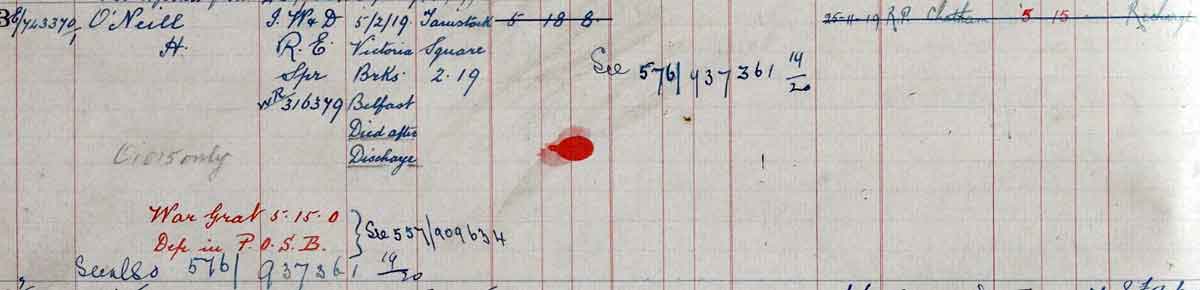 B8/743370/1 O'Neill I. W & D 5/2/19 Tavistock 5 18 8 25-11-19 R.P. Chatham 5 15 - Recharge
H. R.E. Victoria Square
Spr Brks. 2.19 See 576/937361 19/20
WR 316379 Belfast
Died after
only Discharge
War Grat 5.15.0
Dep in P.O.S.B. } See 557/909634
See also 576/937361 19/20